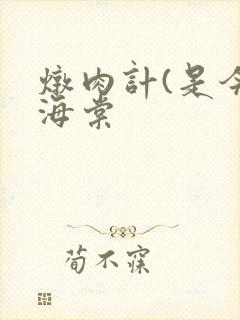 燉肉計(是今
海棠
荀不寐